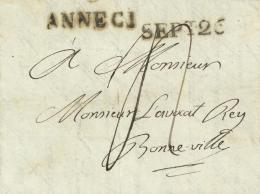 ANNECI
SEPT 26
à Monsieur
Monsieur L'avocat Rey
Bonne-ville